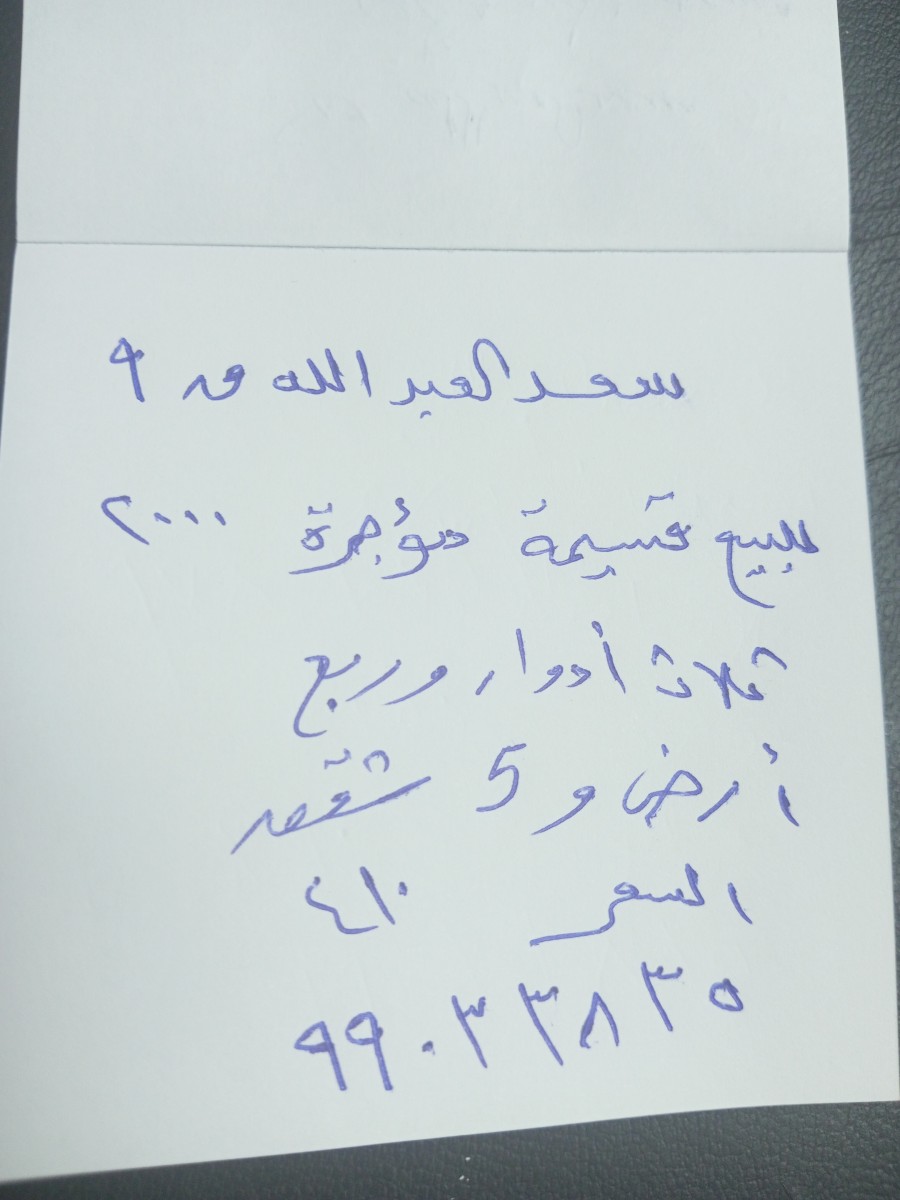 سعد العبدالله ق ٩
للبيع قسيمة مؤجرة ٢٠٠٠
ثلاث أدوار وربع
أرض و 5 شقق
السعر ٤١٠
٩٩٠٣٣٨٣٥